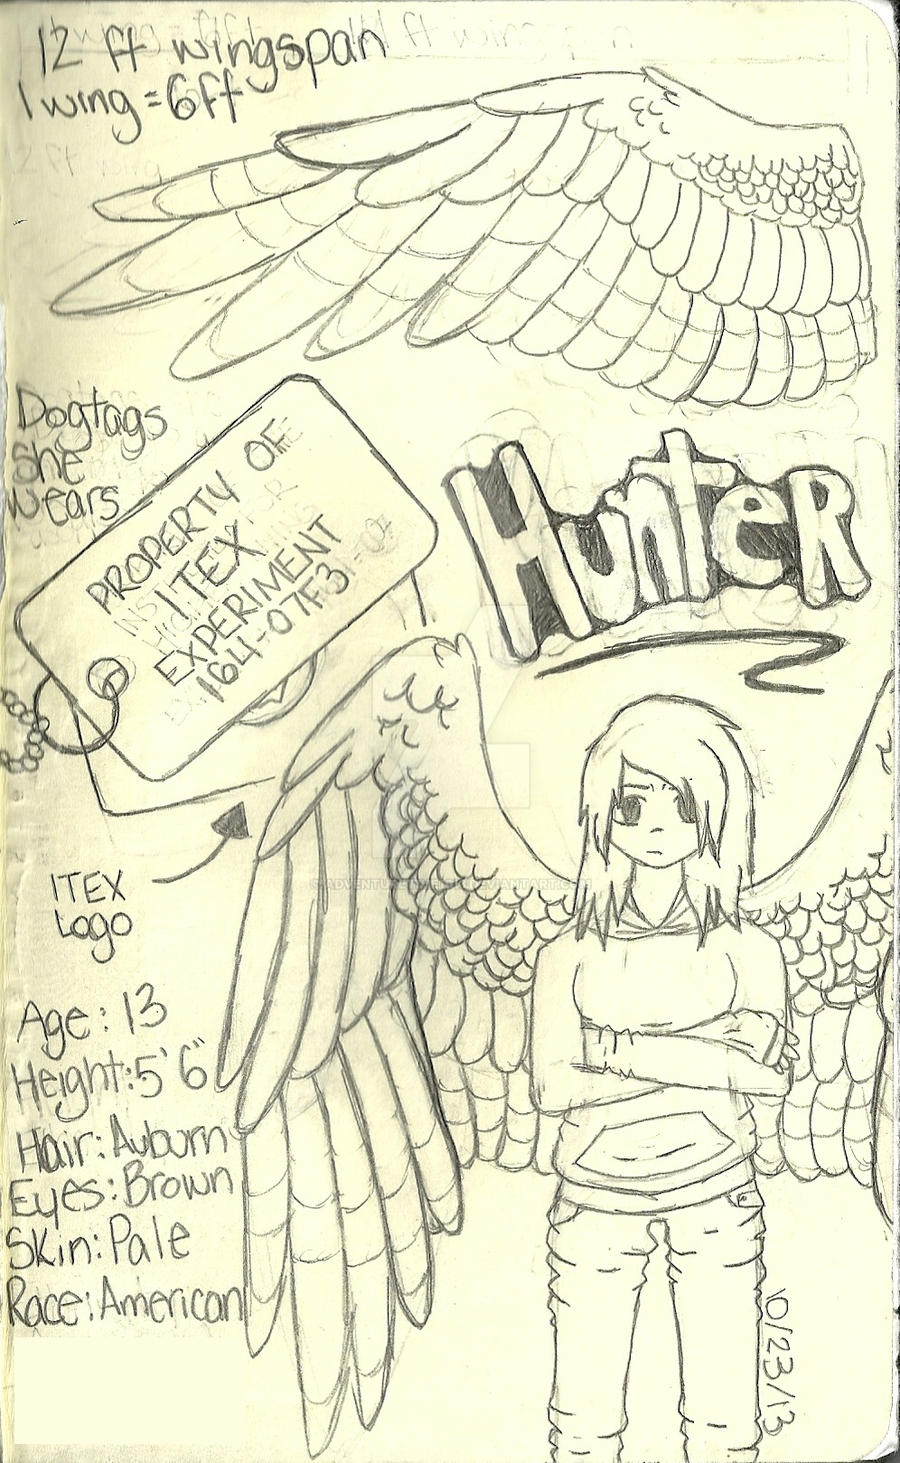 12 ft wingspan
1 wing = 6ft
Dogtags
She
wears
PROPERTY OF
ITEX
EXPERIMENT
164-07F3
HunteR
ITEX
Logo
Age: 13
Height: 5'6"
Hair: Auburn
Eyes: Brown
Skin: Pale
Race: American
10/23/13